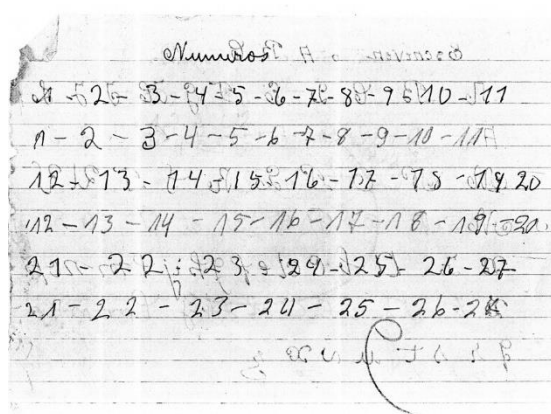 Numuros
1 - 2 - 3 - 4 - 5 - 6 - 7 - 8 - 9 - 10 - 11
1 - 2 - 3 - 4 - 5 - 6 - 7 - 8 - 9 - 10 - 11
12 - 13 - 14 - 15 - 16 - 17 - 18 - 19 20
12 - 13 - 14 - 15 - 16 - 17 - 18 - 19 - 20
21 - 22 - 23 - 24 - 25 - 26 - 27
21 - 22 - 23 - 24 - 25 - 26 - 2